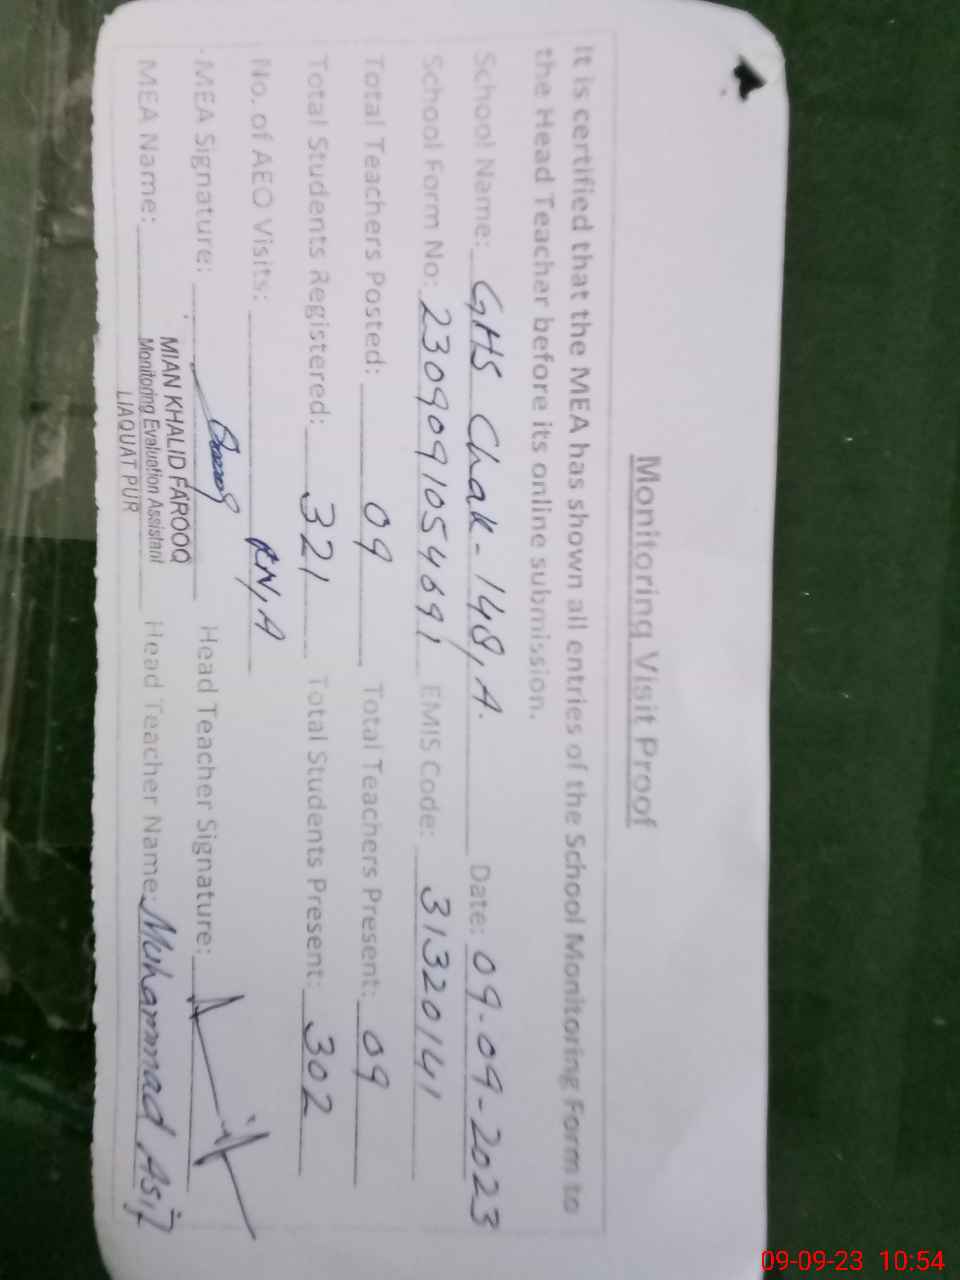 Monitoring Visit Proof
It is certified that the MEA has shown all entries of the School Monitoring Form to
the Head Teacher before its online submission.
School Name: GHS Chak-148, A. Date: 09-09-2023
School Form No: 2309091054691 EMIS Code: 31320141
Total Teachers Posted: 09 Total Teachers Present: 09
Total Students Registered: 321 Total Students Present: 302
No. of AEO Visits: RN, A
MEA Signature: Head Teacher Signature: Asif
MIAN KHALID FAROOQ
MEA Name: Monitoring Evaluation Assistant Head Teacher Name: Muhammad Asif
LIAQUAT PUR
09-09-23 10:54